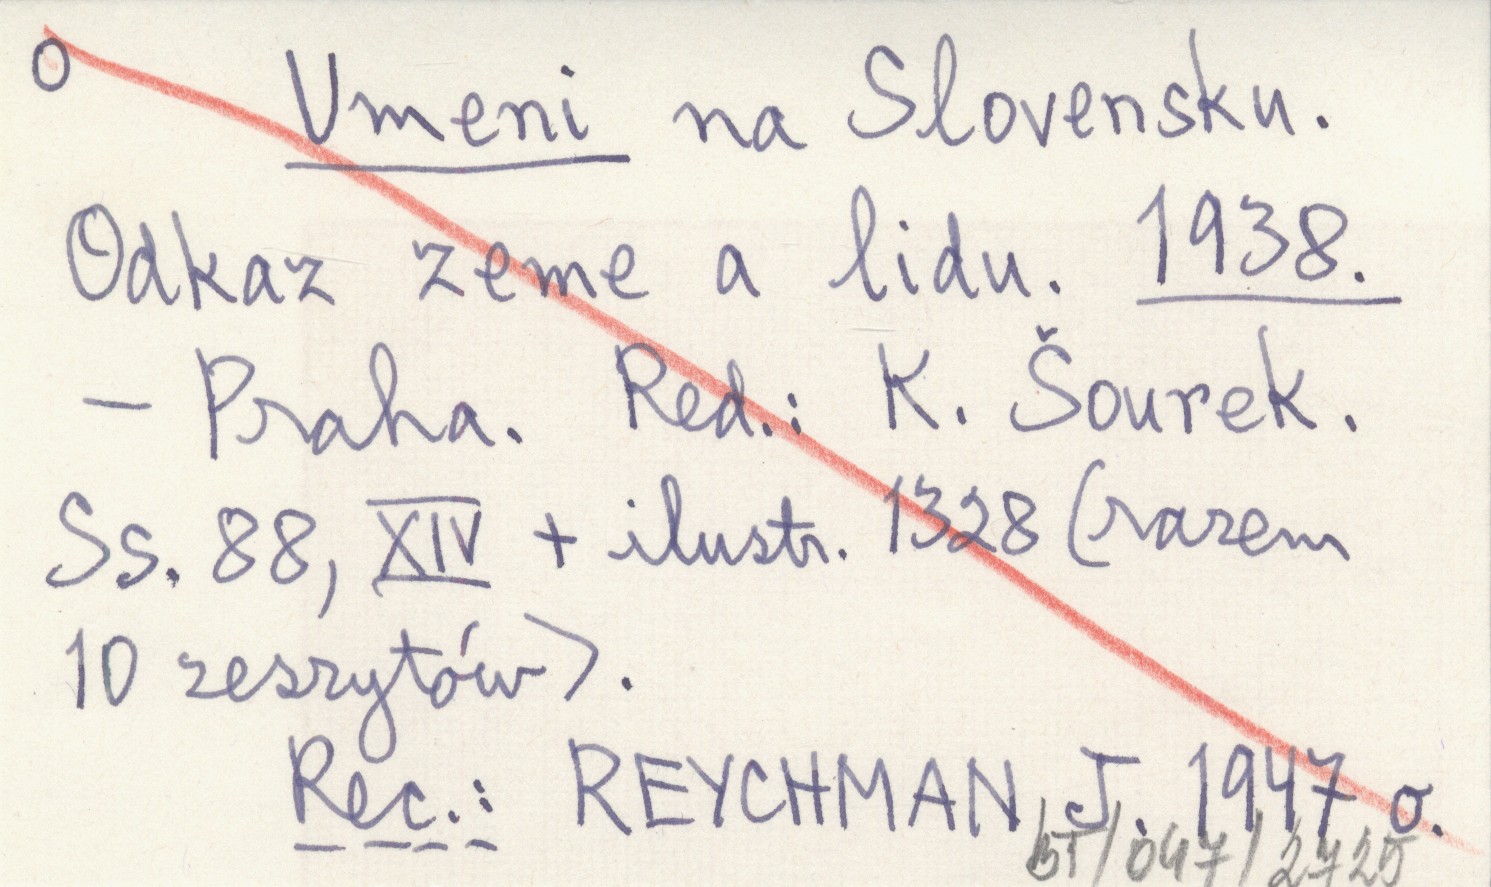 O
Umeni na Slovensku.
Odkaz zeme a lidu. 1938.
– Praha. Red.: K. Šourek.
Ss. 88, XIV + ilustr. 1328 (razem
10 zeszytów).
Rec.: REYCHMAN J. 1947 o.
BT/047/2725